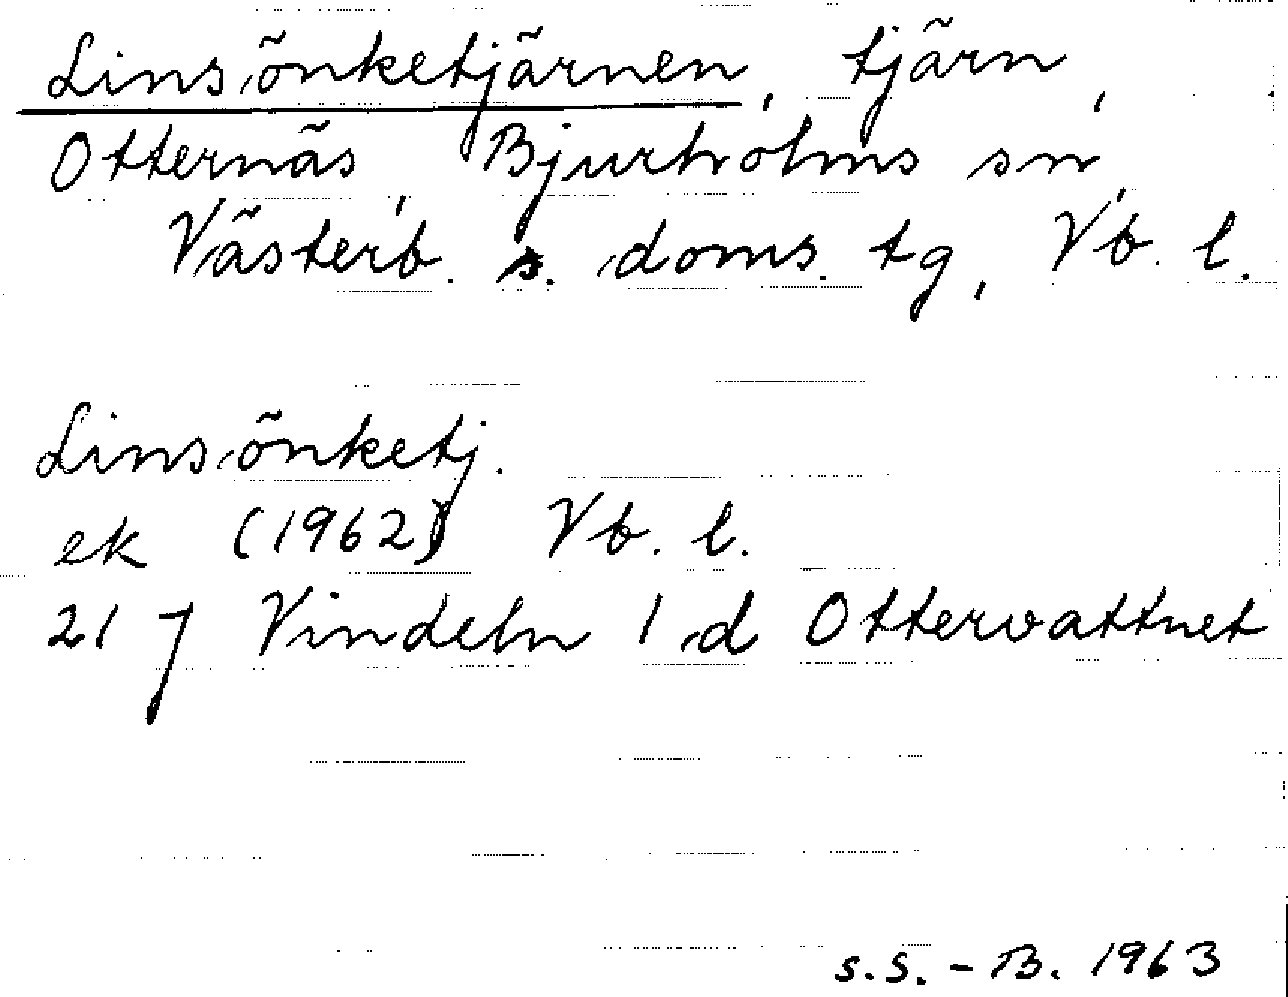 Linsönketjärnen, tjärn,
Otternäs, Bjurholms sn,
Västerb. s. doms. tg, Vb. l.
Linsönketj.
ek (1962) Vb. l.
21 J Vindeln 1 d Ottervattnet
S.S. - B. 1963